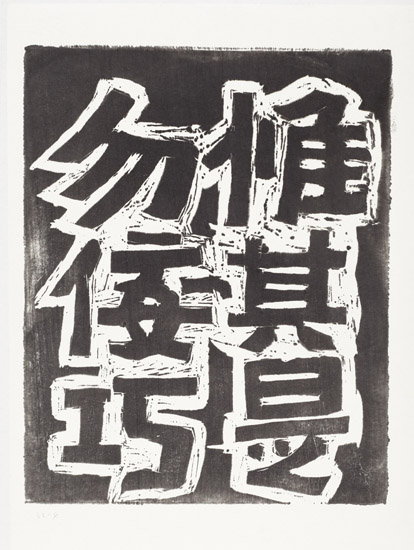 惟其是
勿佞巧